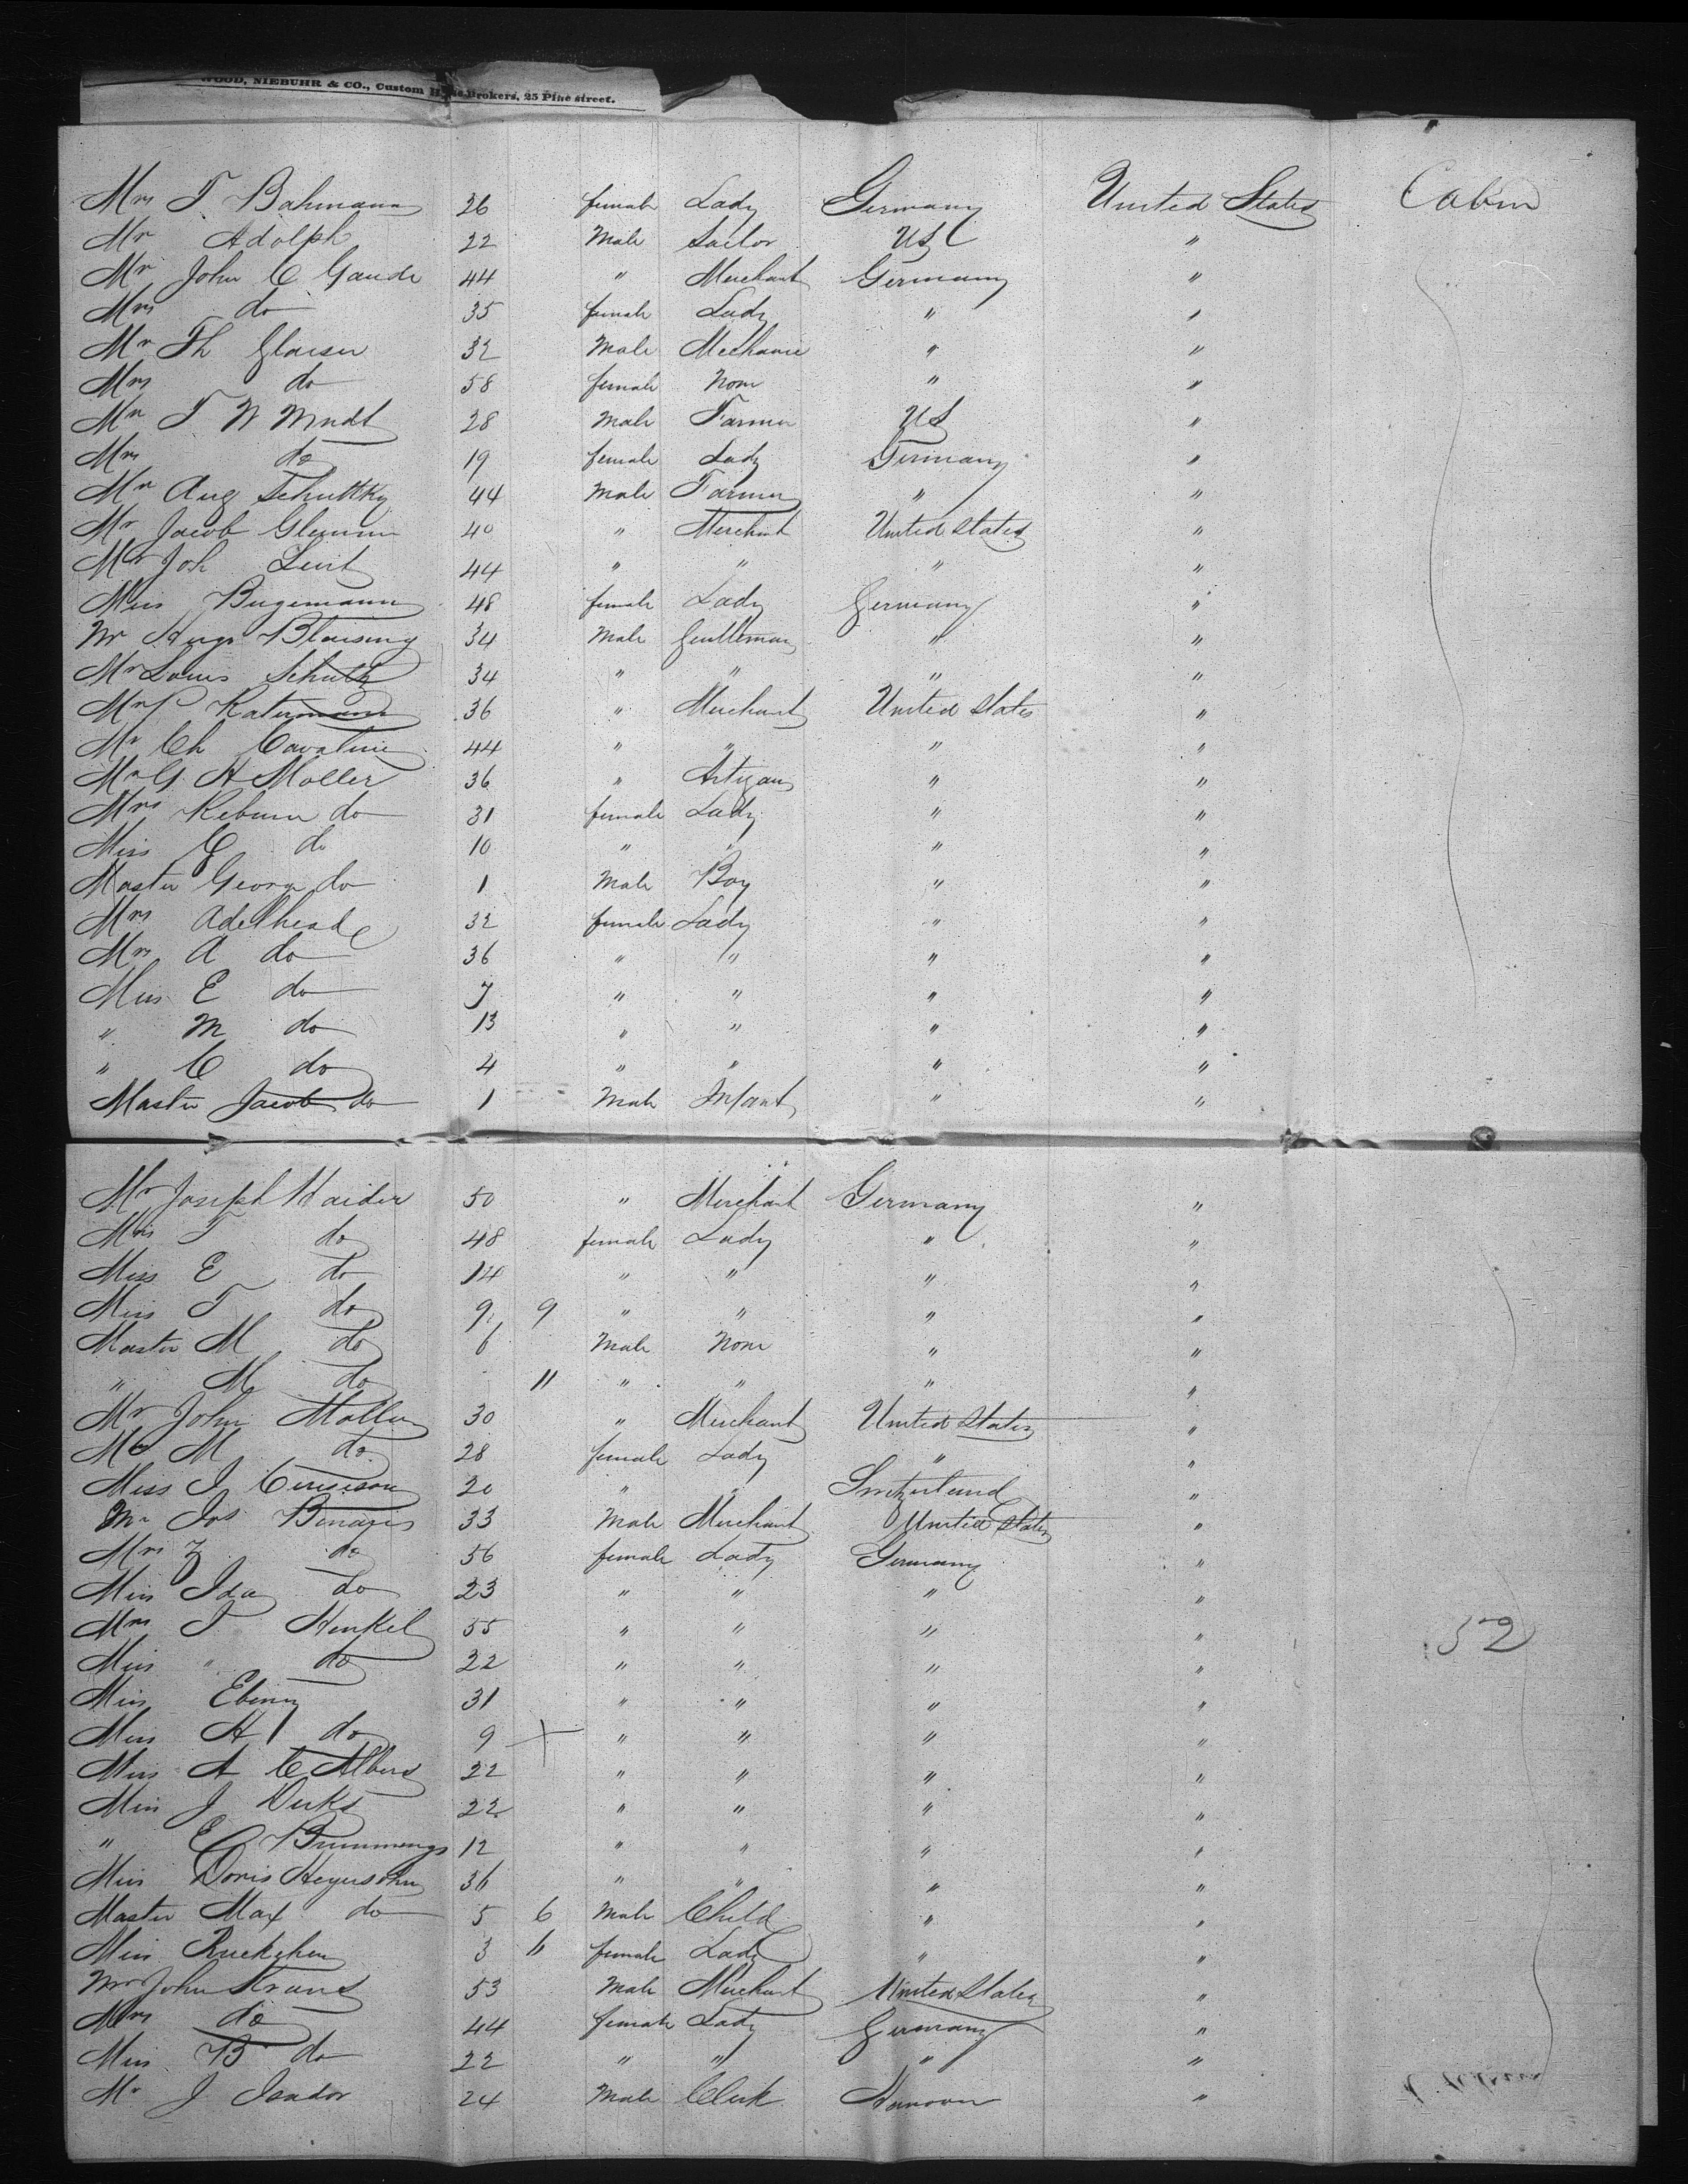 WOOD, NIEBUHR & CO., Custom House Brokers, 25 Pine street.
Mrs T Bahmann 26 female Lady Germany United States Cabin
Mr Adolph 22 Male Sailor US "
Mr John C Gaude 44 " Merchant Germany "
Mrs do 35 female Lady " "
Mr Th Glaeser 32 Male Mechanic " "
Mrs do 58 female None " "
Mr T W Wndt 28 Male Farmer US "
Mrs do 19 female Lady Germany "
Mr Aug Schuttky 44 Male Farmer " "
Mr Jacob 40 " Merchant United States "
Mr Joh 44 " " " "
Miss Bugemann 48 female Lady Germany "
Mr Hugo Blausing 34 Male Gentleman " "
Mr Louis Schultz 34 " " " "
Mr P Katermann 36 " Merchant United States "
Mr Ch 44 " " " "
Mr G H Moller 36 " Artizan " "
Mrs do 31 female Lady " "
Miss do 10 " " " "
Master George do 1 Male Boy " "
Mrs Adelheid 32 female Lady " "
Mrs A do 36 " " " "
Miss E do 7 " " " "
" M do 13 " " " "
" C do 4 " " " "
Master Jacob do 1 Male Infant " "
Mr Joseph Haider 50 " Merchant Germany "
Mrs T do 48 female Lady " "
Miss E do 14 " " " "
Miss T do 9 9 " " " "
Master M do 6 Male None " "
" M do 11 " " " "
Mr John Moller 30 " Merchant United States "
Mrs M do 28 female Lady " "
Miss J 20 " " Switzerland "
Mr Jos Binages 33 Male Merchant United States "
Mrs Z do 56 female Lady Germany "
Miss Ida do 23 " " " "
Mrs T Henkel 55 " " " "
Miss " do 22 " " " " 52
Miss Ebing 31 " " " "
Miss H do 9 + " " " "
Miss A C Albers 22 " " " "
Miss J Derks 22 " " " "
" E Brummengs 12 " " " "
Miss Doris Heyersohn 36 " " " "
Master Max do 5 6 Male Child " "
Miss 3 female Lady " "
Mr John Krans 53 Male Merchant United States "
Mrs do 44 female Lady Germany "
Miss B do 22 " " " "
Mr J Isador 24 Male Clerk Hanover "